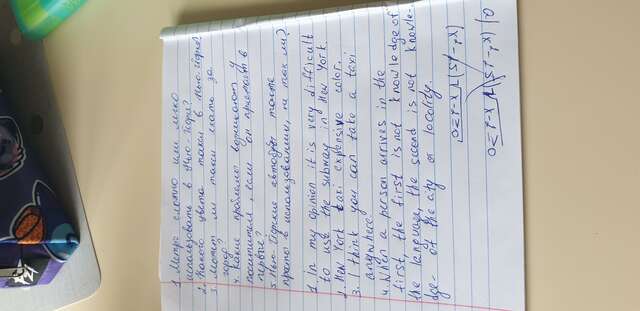 1 Метро сложно или легко
использовать в Нью-Йорк?
2. Какого цвета такси в Нью-Йорке?
3. может ли такси ехать за
город?
4. Какие проблемы возникают у
посетителя, если он приехать в
первые?
5. Нью-Йоркие автобусы также
просто в использовании, не так ли?
1. In my opinion it is very difficult
to use the subway in New York.
2. New York taxi expensive color.
3. I think you can take a taxi
anywhere
4. When a person arrives in the
first, the first is not knowledge of
the language, the second is not knowle-
dge of the city or locality.